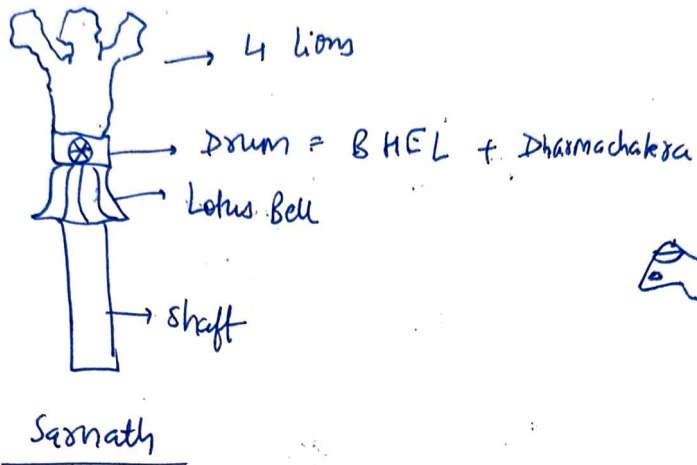 → 4 lions
→ Drum = BHEL + Dharmachakra
→ Lotus Bell
→ Shaft
Sarnath